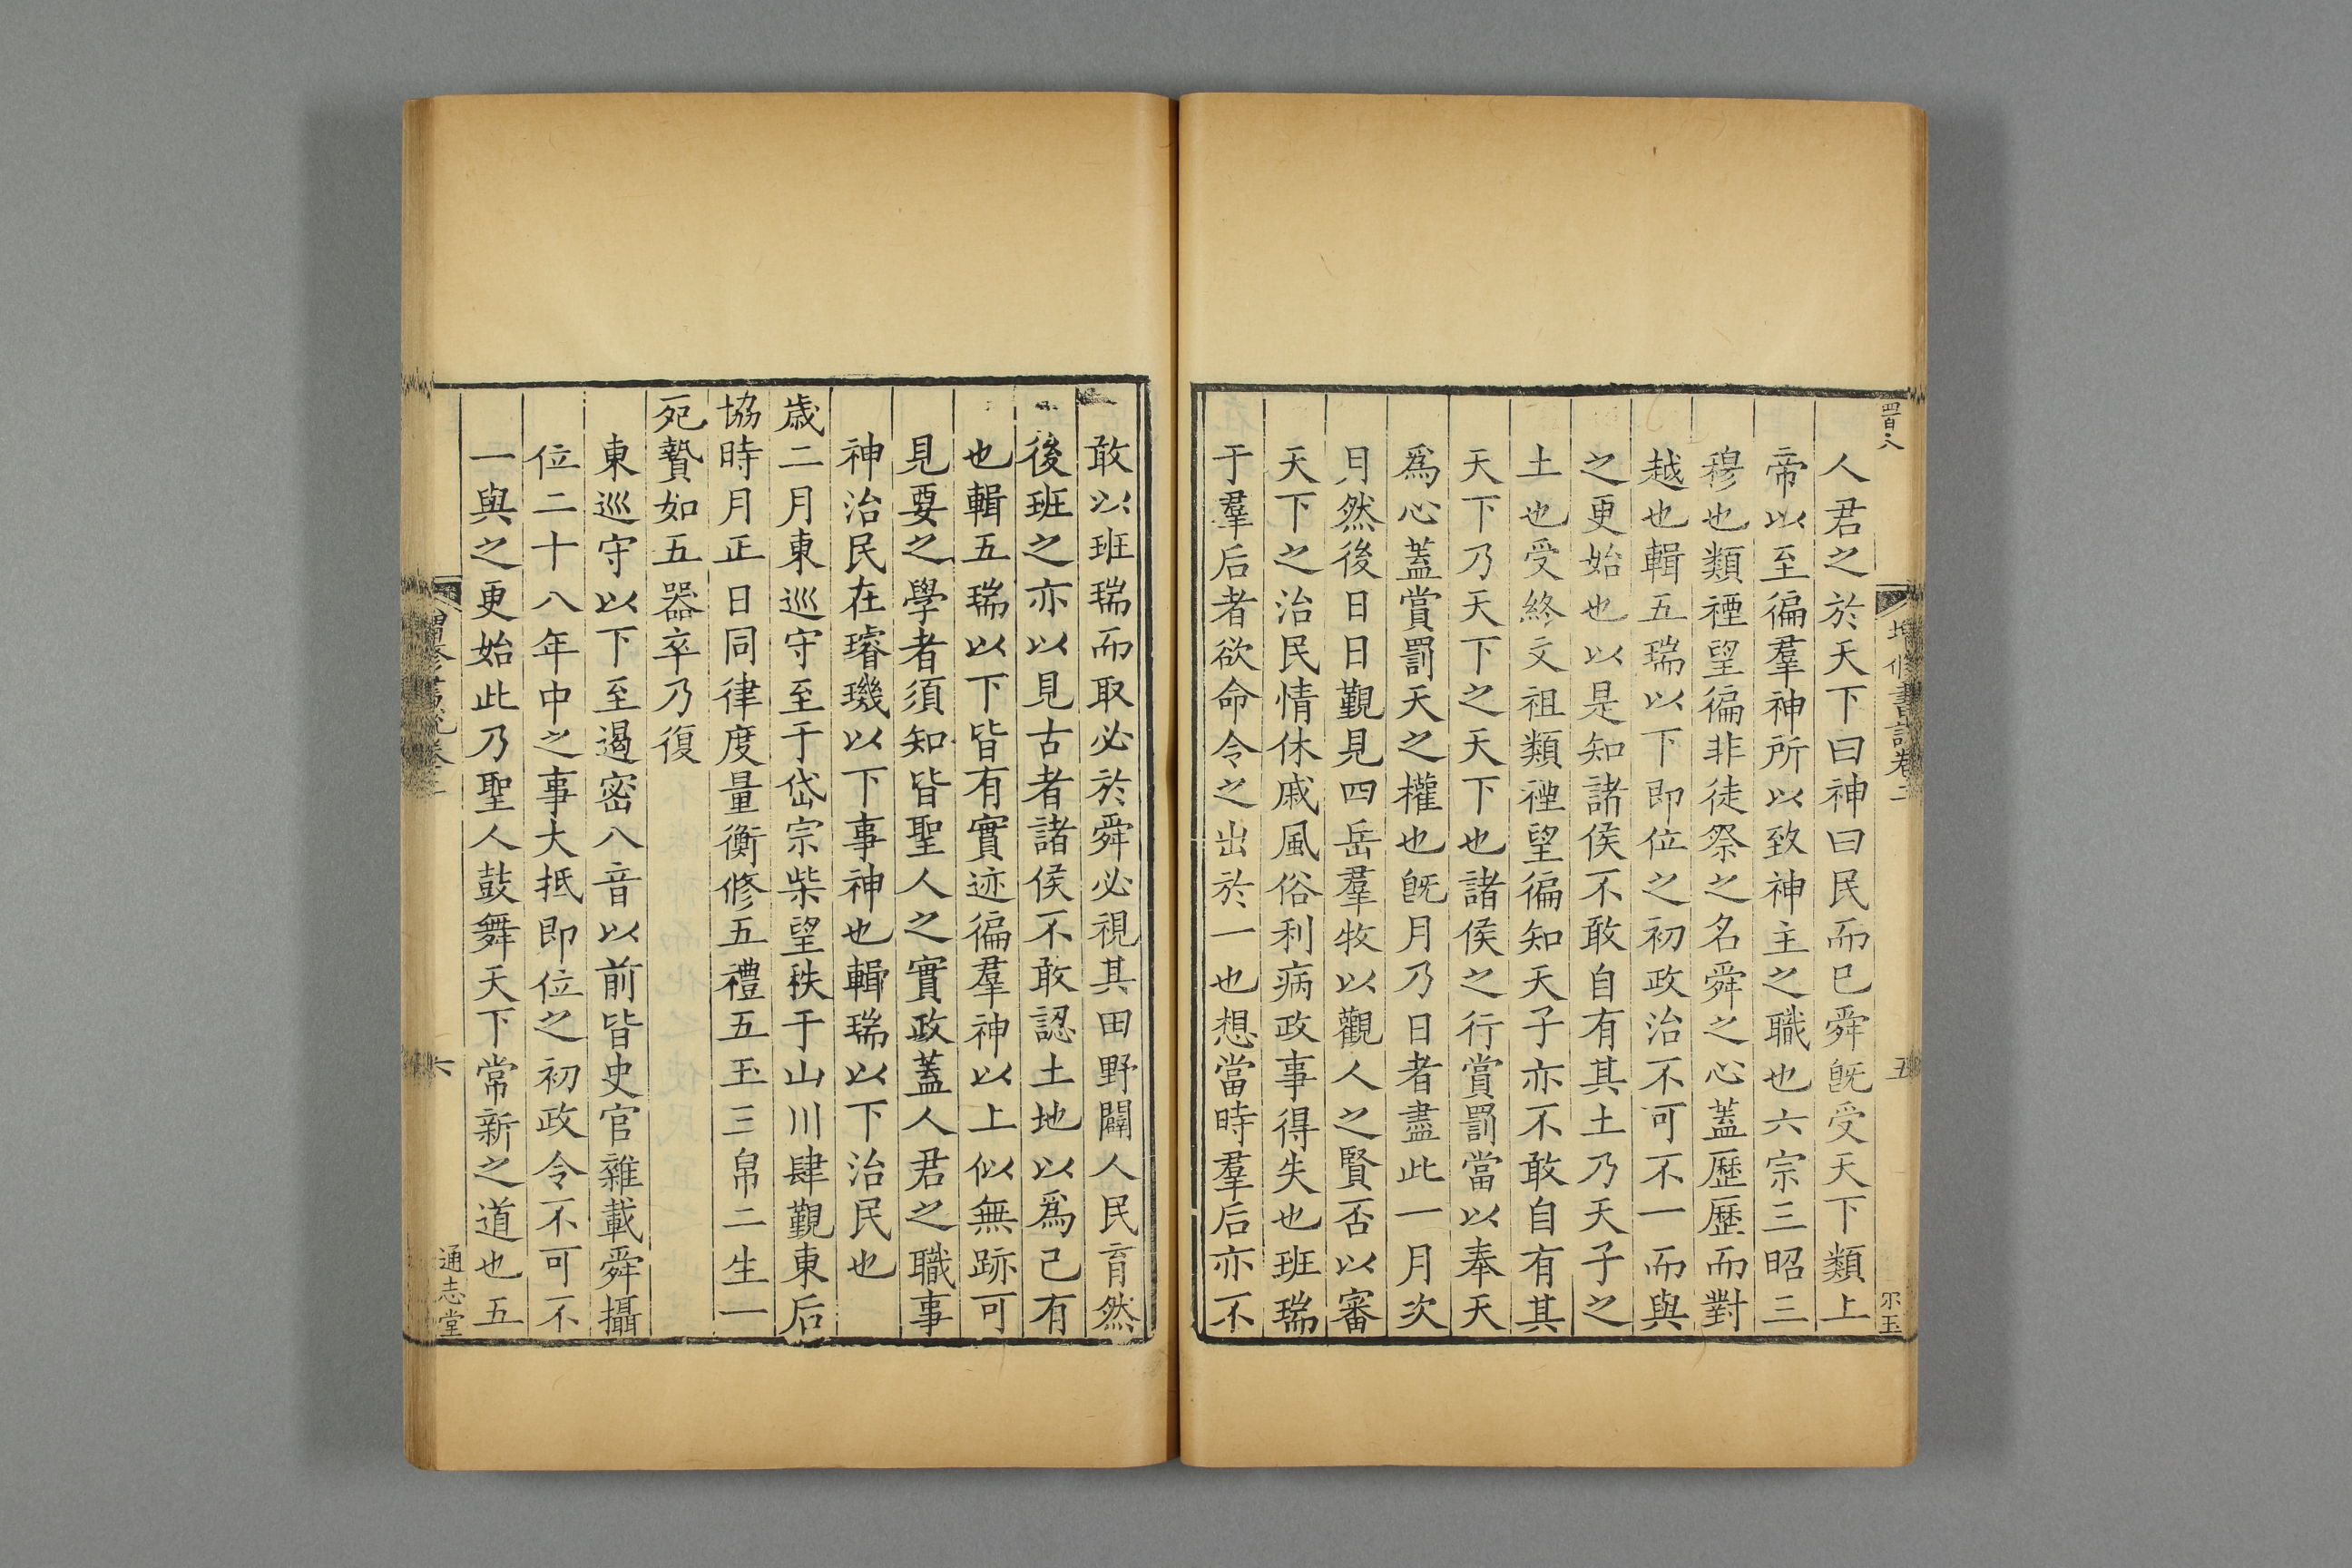 四百八
增修書說卷二
五
尔玉
人君之於天下曰神曰民而已舜旣受天下類上
帝以至徧羣神所以致神主之職也六宗三昭三
穆也類禋望徧非徒祭之名舜之心蓋歷歷而對
越也輯五瑞以下即位之初政治不可不一而與
之更始也以是知諸侯不敢自有其土乃天子之
土也受終文祖類禋望徧知天子亦不敢自有其
天下乃天下之天下也諸侯之行賞罰當以奉天
爲心蓋賞罰天之權也旣月乃日者盡此一月次
月然後日日覲見四岳羣牧以觀人之賢否以審
天下之治民情休戚風俗利病政事得失也班瑞
于羣后者欲命令之出於一也想當時羣后亦不
敢以班瑞而取必於舜必視其田野闢人民育然
後班之亦以見古者諸侯不敢認土地以爲己有
也輯五瑞以下皆有實迹徧羣神以上似無跡可
見要之學者須知皆聖人之實政蓋人君之職事
神治民在璿璣以下事神也輯瑞以下治民也
歲二月東巡守至于岱宗柴望秩于山川肆覲東后
協時月正日同律度量衡修五禮五玉三帛二生一
死贄如五器卒乃復
東巡守以下至遏密八音以前皆史官雜載舜攝
位二十八年中之事大抵即位之初政令不可不
一與之更始此乃聖人鼓舞天下常新之道也五
增修書說卷二
六
通志堂